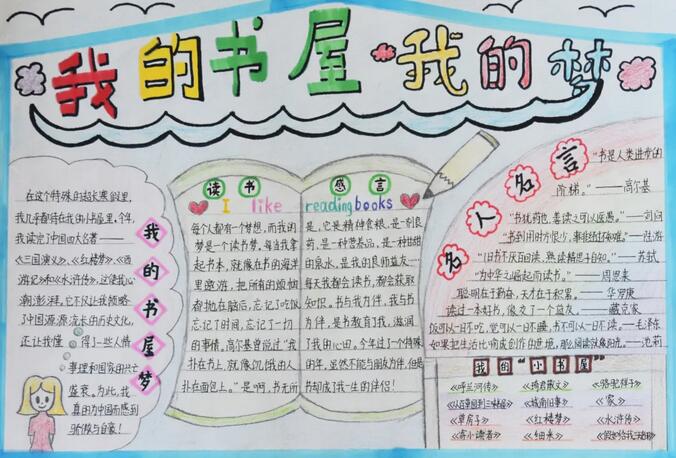 我的书屋·我的梦
在这个特殊的超长寒假里,
我几乎都待在我的小书屋里,今年,
我读完了中国四大名著——
《三国演义》、《红楼梦》、《西
游记》和《水浒传》,这使我心
潮澎湃。它不仅让我领略
了中国源源流长的历史文化,
还让我懂得了一些人情
事理和国家的兴亡
盛衰。为此,我
真的为中国而感到
骄傲与自豪!
我的书屋梦
读书感言
I like reading books
每个人都有一个梦想,而我的
梦是一个读书梦。每当我拿
起书本,就像在书的海洋
里遨游,把所有的烦恼
都抛在脑后,忘记了吃饭
忘记了时间,忘记了一切
的事情。高尔基曾说过“我
扑在书上,就像饥饿的人
扑在面包上。”是啊,书无所不
是,它是精神食粮,是一剂良
药,是一种营养品,是一种甘甜
的泉水,是我的良师益友……
每天我都会读书,都会获取
知识。书与我为伴,我与书
为伴,是书教育了我,滋润
了我的心田。今年过了个特殊
的年,虽然不能与朋友为伴,但是
书却成了我一生的伴侣!
名人名言
“书是人类进步的
阶梯。”——高尔基
“书犹药也,善读之可以医愚。”——刘向
“书到用时方恨少,事非经过不知难。”——陆游
“旧书不厌百回读,熟读精思子自知。”——苏轼
“为中华之崛起而读书。”——周恩来
聪明在于勤奋,天才在于积累。——华罗庚
读过一本好书,像交了一个益友。——臧克家
饭可以一日不吃,觉可以一日不睡,书不可以一日不读。——毛泽东
如果把生活比喻成创作的意境,那么阅读就像阳光。——池莉
我的“小书屋”
《呼兰河传》 《骑鹅散文》 《骆驼祥子》
《从百草园到三味书屋》 《城南旧事》 《家》
《草房子》 《红楼梦》 《水浒传》
《寄小读者》 《细米》 《假如给我三天光明》